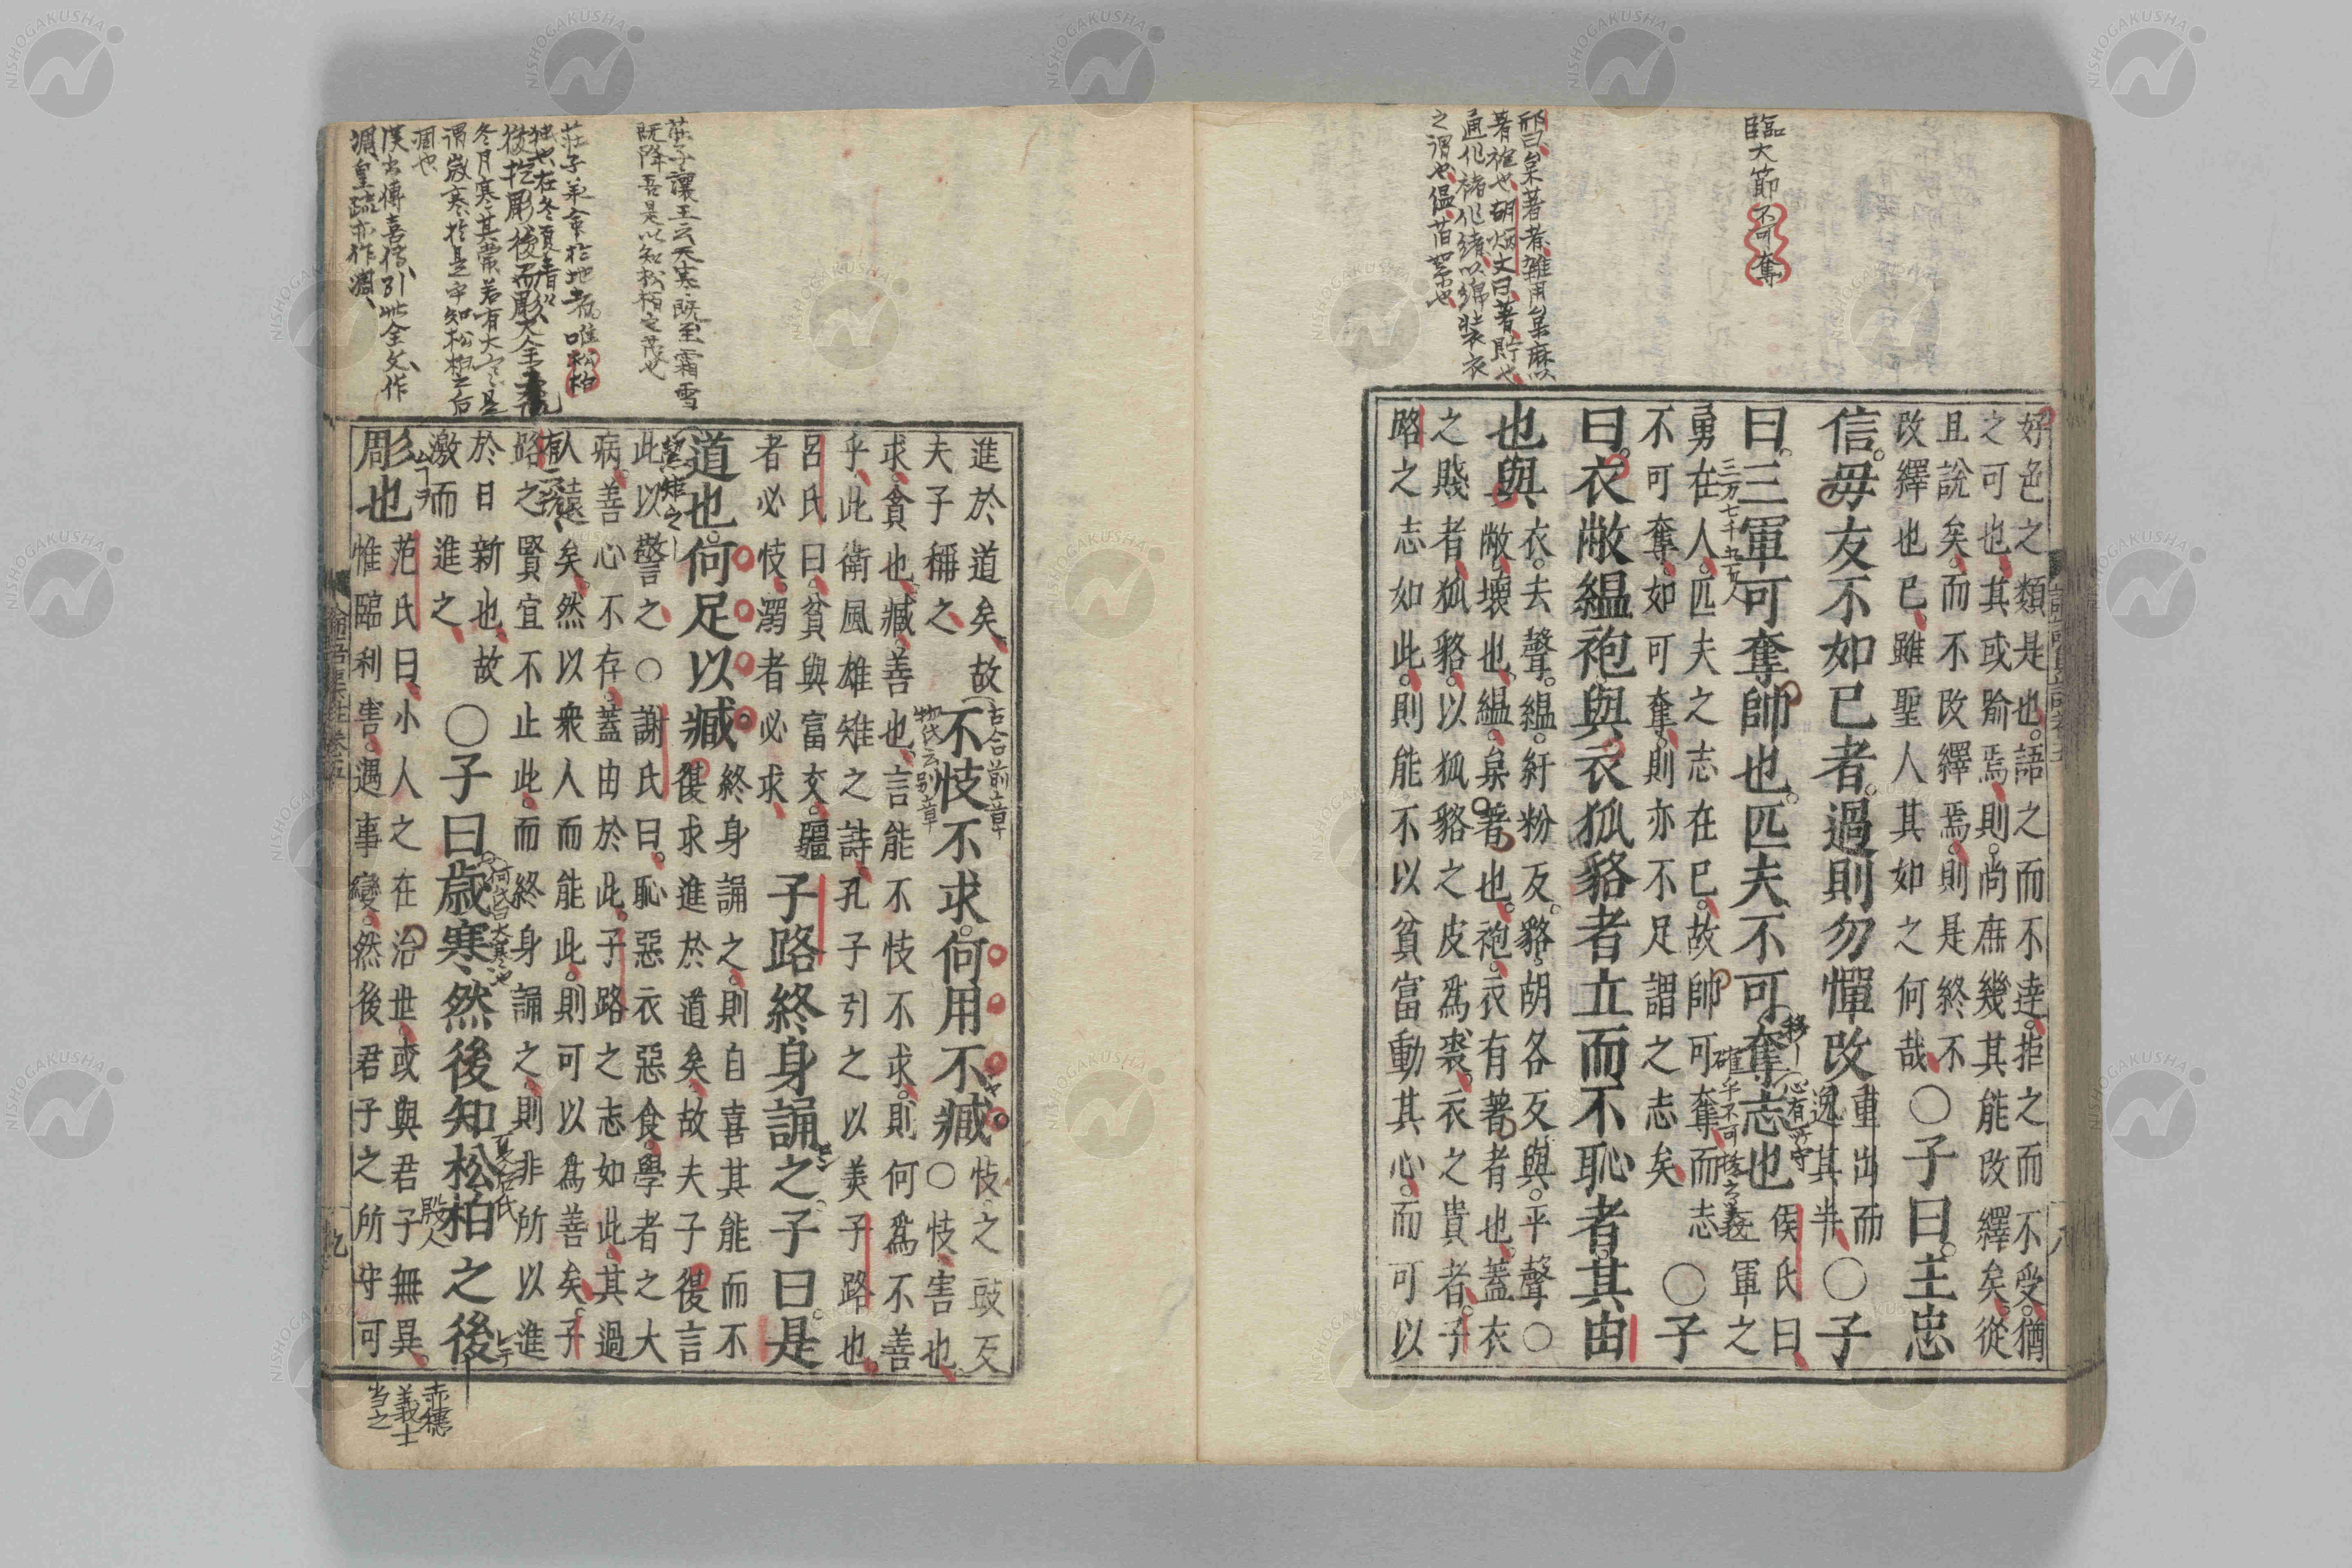 臨大節不可奪
邢曰枲著者雜用枲麻以
著袍也胡炳文曰著貯也
通作褚作緒以綿裝衣
之謂也縕苴絮也
好色之類是也語之而不達拒之而不受猶
之可也其或喻焉則尚庶幾其能改繹矣從
且說矣而不改繹焉則是終不
改繹也已雖聖人其如之何哉○子曰主忠
信毋友不如已者過則勿憚改重出而
逸其半○子
曰三軍可奪帥也匹夫不可奪志也侯氏曰
三軍之
三万七千五百人
勇在人匹夫之志在已故帥可奪而志
不可奪如可奪則亦不足謂之志矣○子
曰衣敝縕袍與衣狐貉者立而不恥者其由
也與衣去聲縕紆粉反貉胡各反與平聲○
敝壞也縕枲著也袍衣有著者也蓋衣
之賤者狐貉以狐貉之皮爲裘衣之貴者子
路之志如此則能不以貧富動其心而可以
莊子讓王云天寒既至霜雪
既降吾是以知松柏之茂也
凋也
漢書傅喜傳引此全文作
凋皇疏亦作凋
進於道矣故
夫子稱之不忮不求何用不臧忮之豉反
○忮害也
古合前章
物氏云別章
求貪也臧善也言能不忮不求則何爲不善
乎此衛風雄雉之詩孔子引之以美子路也
呂氏曰貧與富交彊
者必忮弱者必求子路終身誦之子曰是
道也何足以臧終身誦之則自喜其能而不
復求進於道矣故夫子復言
此以警之○謝氏曰恥惡衣惡食學者之大
病善心不存蓋由於此子路之志如此其過
人遠矣然以衆人而能此則可以爲善矣子
路之賢宜不止此而終身誦之則非所以進
於日新也故
激而進之○子曰歲寒然後知松柏之後
彫也范氏曰小人之在治世或與君子無異
惟臨利害遇事變然後君子之所守可
赤穗
義士
当之